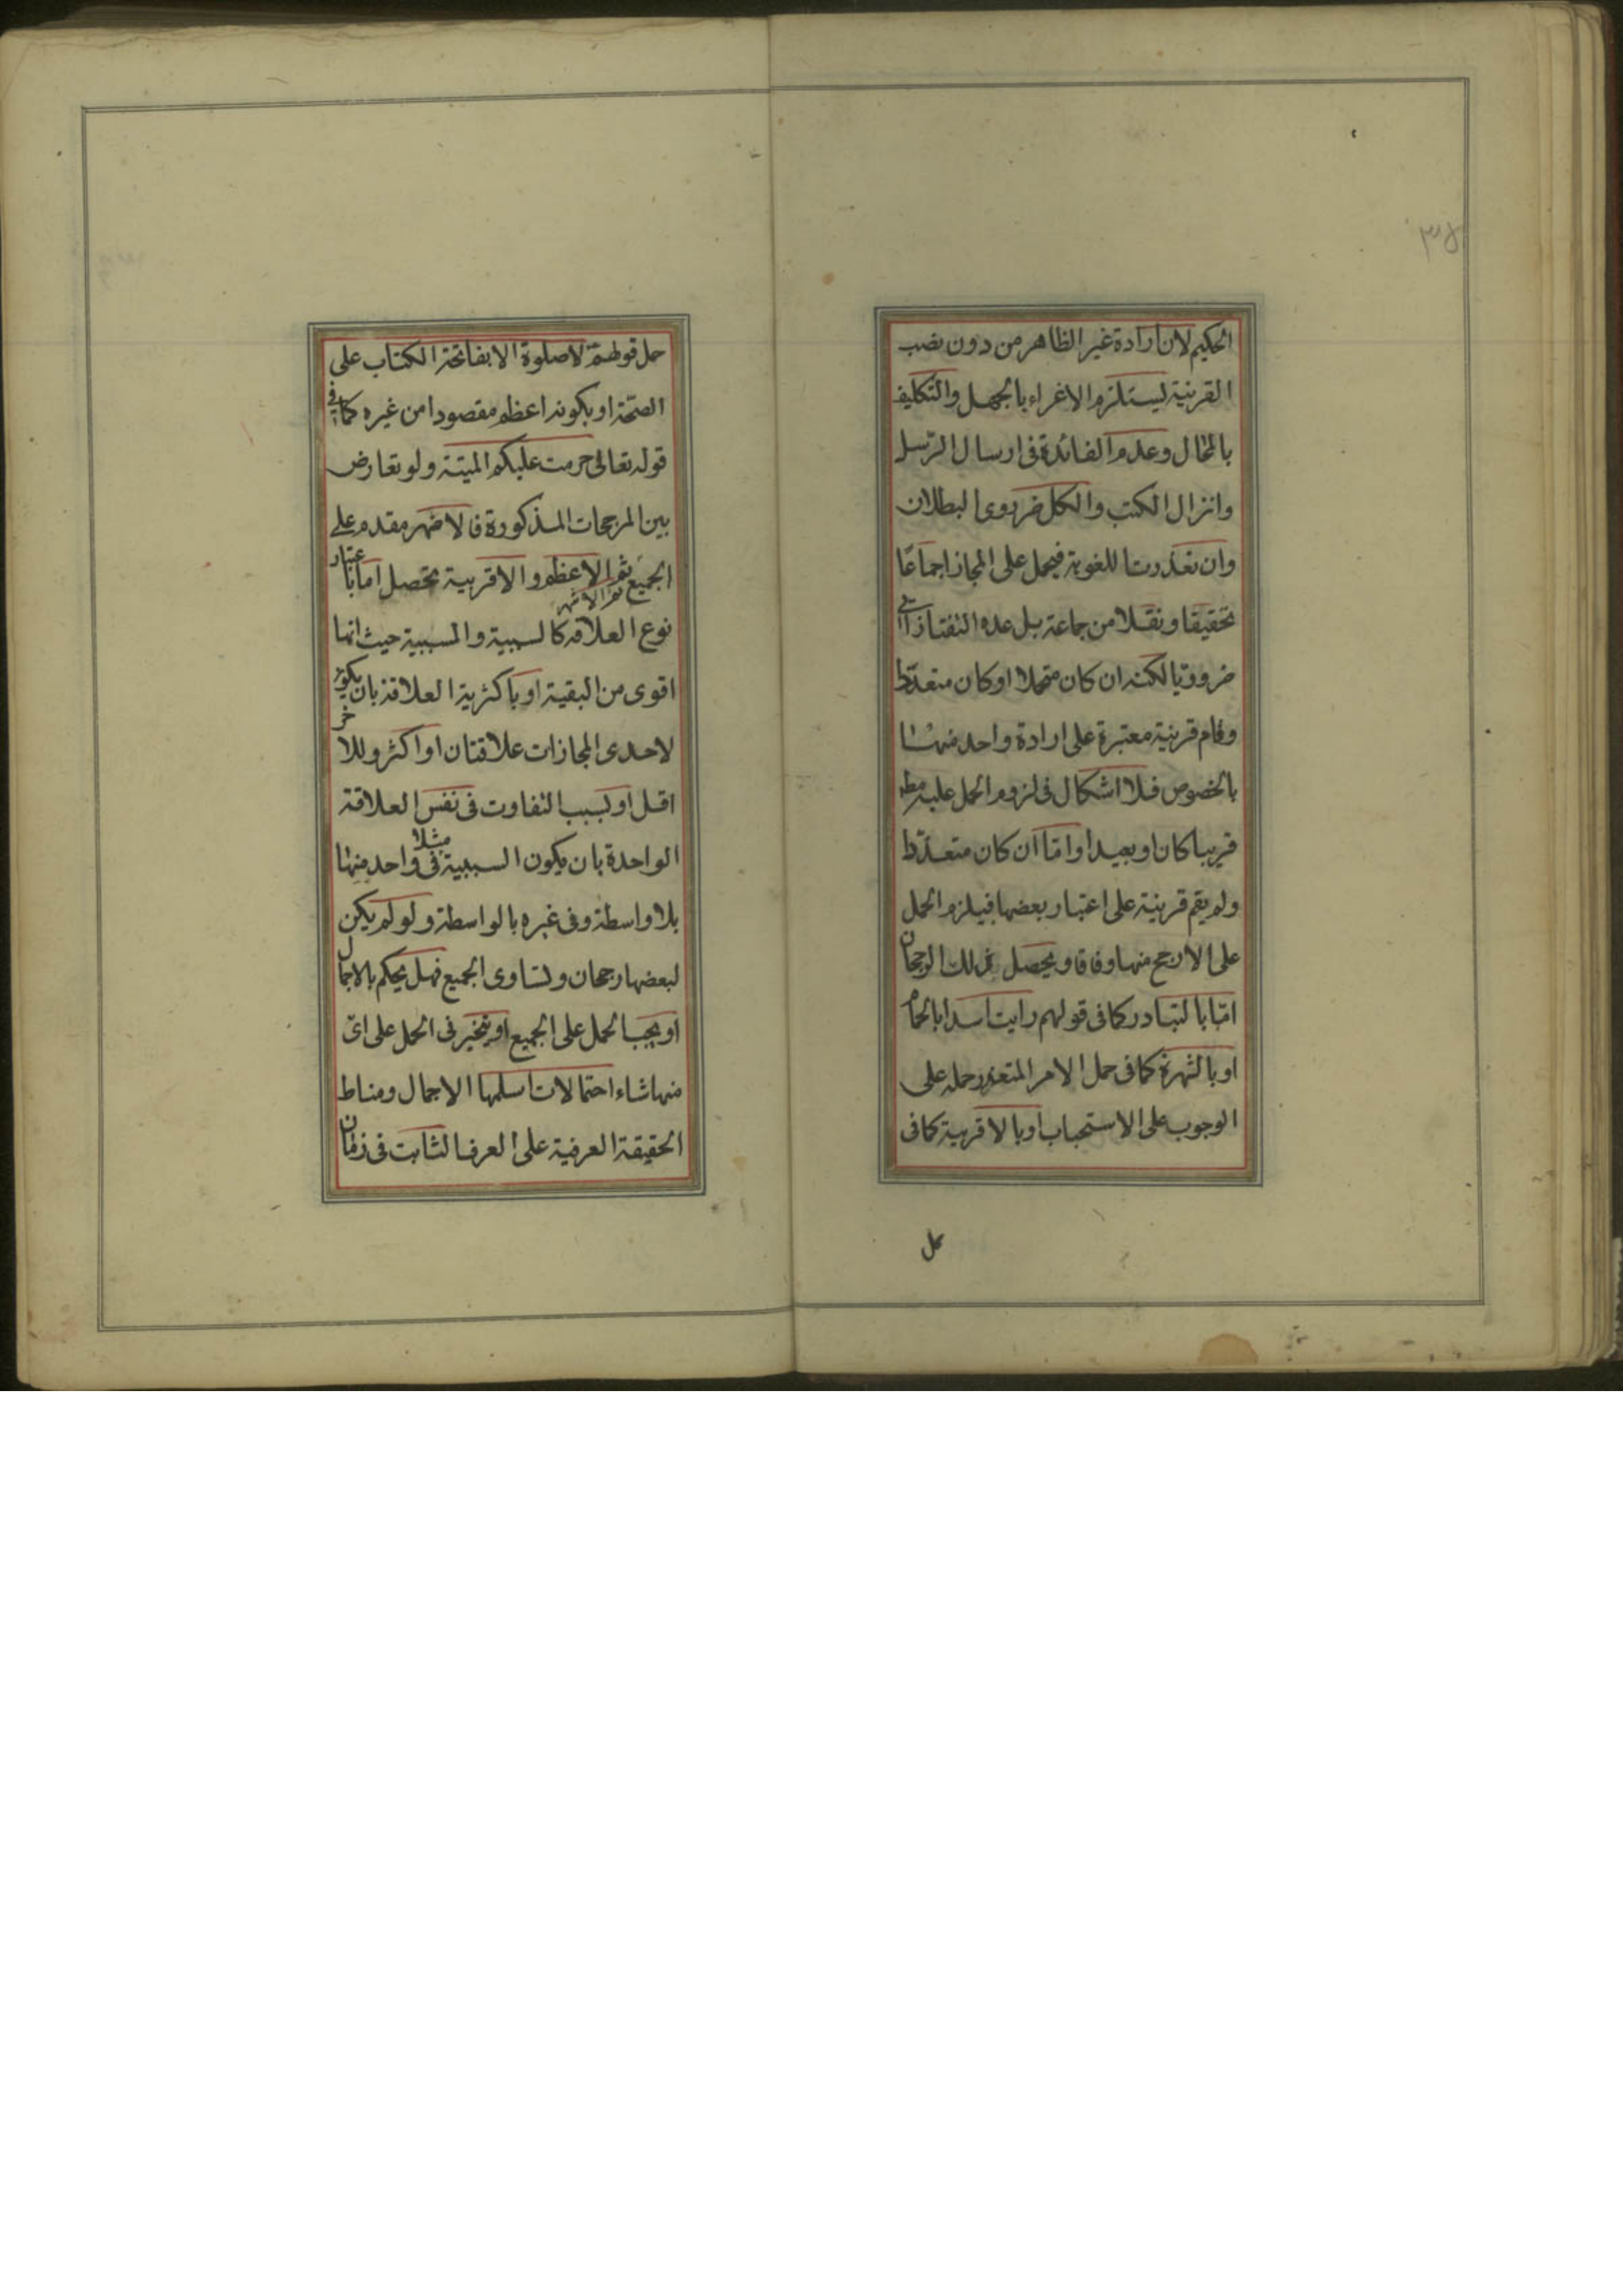 الحكيم لان ارادة غير الظاهر من دون نصب
القرينة يستلزم الاغراء بالجهل والتكليف
بالمحال وعدم الفائدة فى ارسال الرسل
وانزال الكتب والكل ضرورى البطلان
وان تعذرت اللغوية فيحمل على المجاز اجماعًا
تحقيقا ونقلا من جماعة بل عده التفتازانى
ضروريا لكنه ان كان متحدا او كان متعددا
وقام قرينة معتبرة على ارادة واحد منها
بالخصوص فلا اشكال فى لزوم الحمل عليه مط
قريبا كان او بعيدا واما ان كان متعددا
ولم يقم قرينة على اعتبار بعضها فيلزم الحمل
على الارجح منها وفاقا ويحصل ذلك الرجحان
امّا بالتبادر كما فى قولهم رايت اسدا بالحمام
او بالشهرة كما فى حمل الامر المتعذر حمله على
الوجوب على الاستحباب او بالاقربية كما فى
حمل
حمل قولهم لا صلوة الا بفاتحة الكتاب على
الصحّة او بكونه اعظم مقصودا من غيره كما فى
قوله تعالى حرمت عليكم الميتة ولو تعارض
بين المرجحات المذكورة فالاظهر مقدم على
الجميع ثم الاشهر ثم الاعظم والاقربية تحصل اما باعتبار
نوع العلاقه كالسببية والمسببية حيث انها
اقوى من البقية او باكثرية العلاقة بان يكون
لاحدى المجازات علاقتان او اكثر وللاخر
اقل او بسبب التفاوت فى نفس العلاقة
الواحدة بان يكون السببية مثلا فى واحد منها
بلا واسطة وفى غيره بالواسطة ولو لم يكن
لبعضها رجحان وتساوى الجميع فهل يحكم بالاجمال
او يجب الحمل على الجميع او يتخير فى الحمل على اىّ
منها شاء احتمالات اسلمها الاجمال ومناط
الحقيقة العرفية على العرف الثابت فى زمان